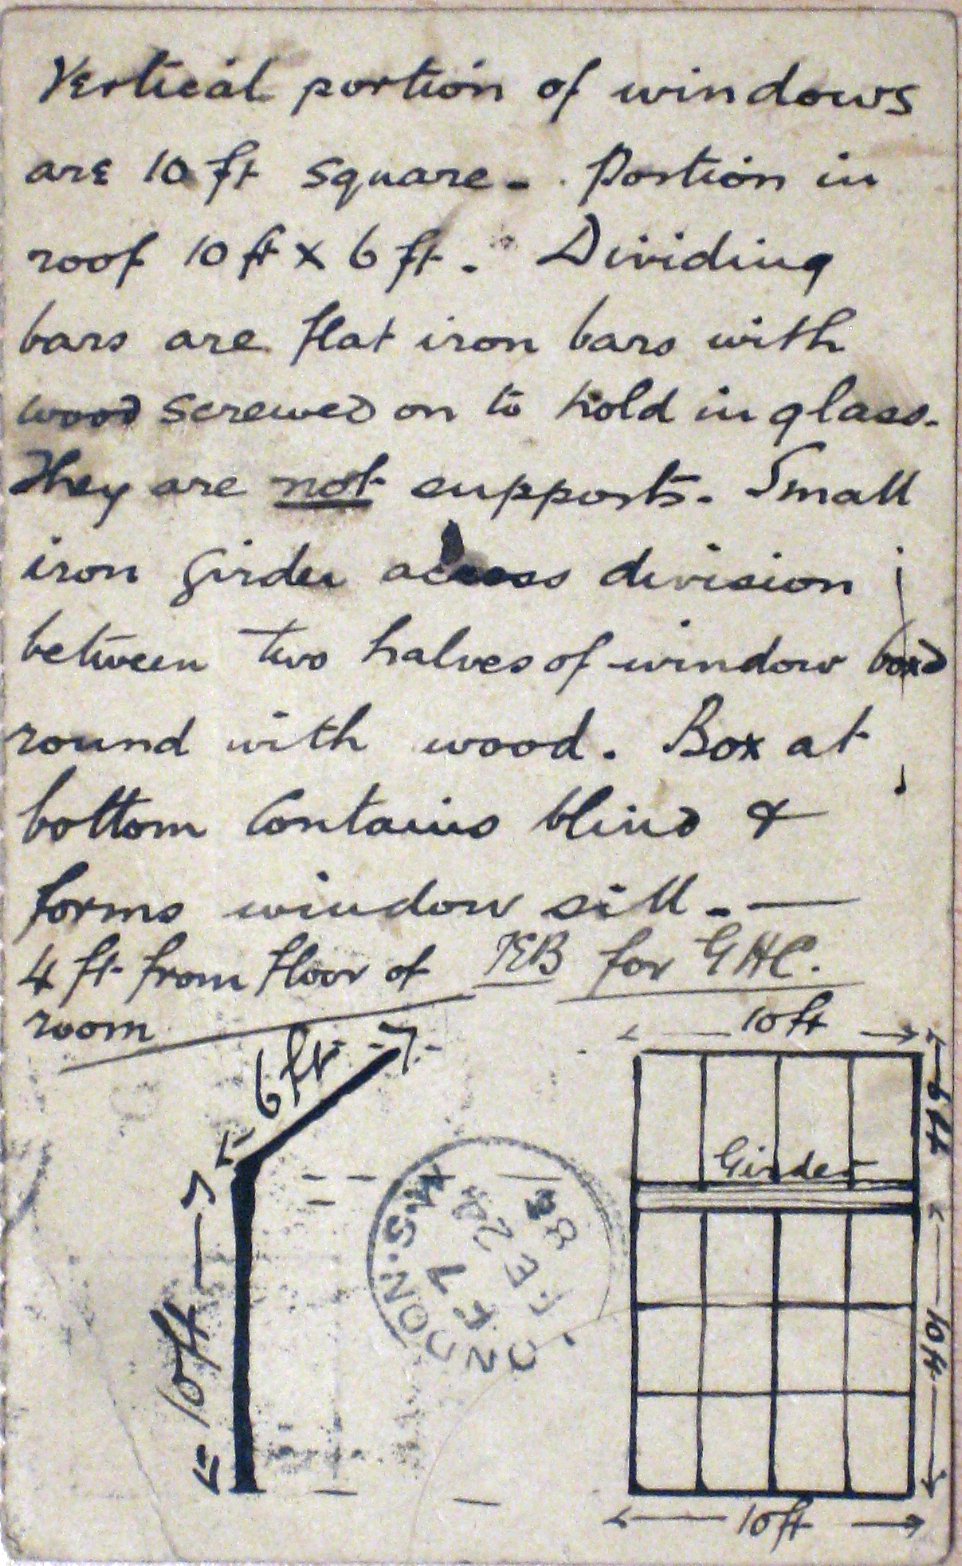 Vertical portion of windows
are 10 ft square - Portion in
roof 10 ft x 6 ft. Dividing
bars are flat iron bars with
wood screwed on to hold in glass.
They are not supports. Small
iron girder across division
between two halves of window boxd
round with wood. Box at
bottom contains blind &
forms window sill. —
4 ft from floor of
room
for GHC.
10 ft
6 ft
6 ft
Girder
10 ft
10 ft
10 ft